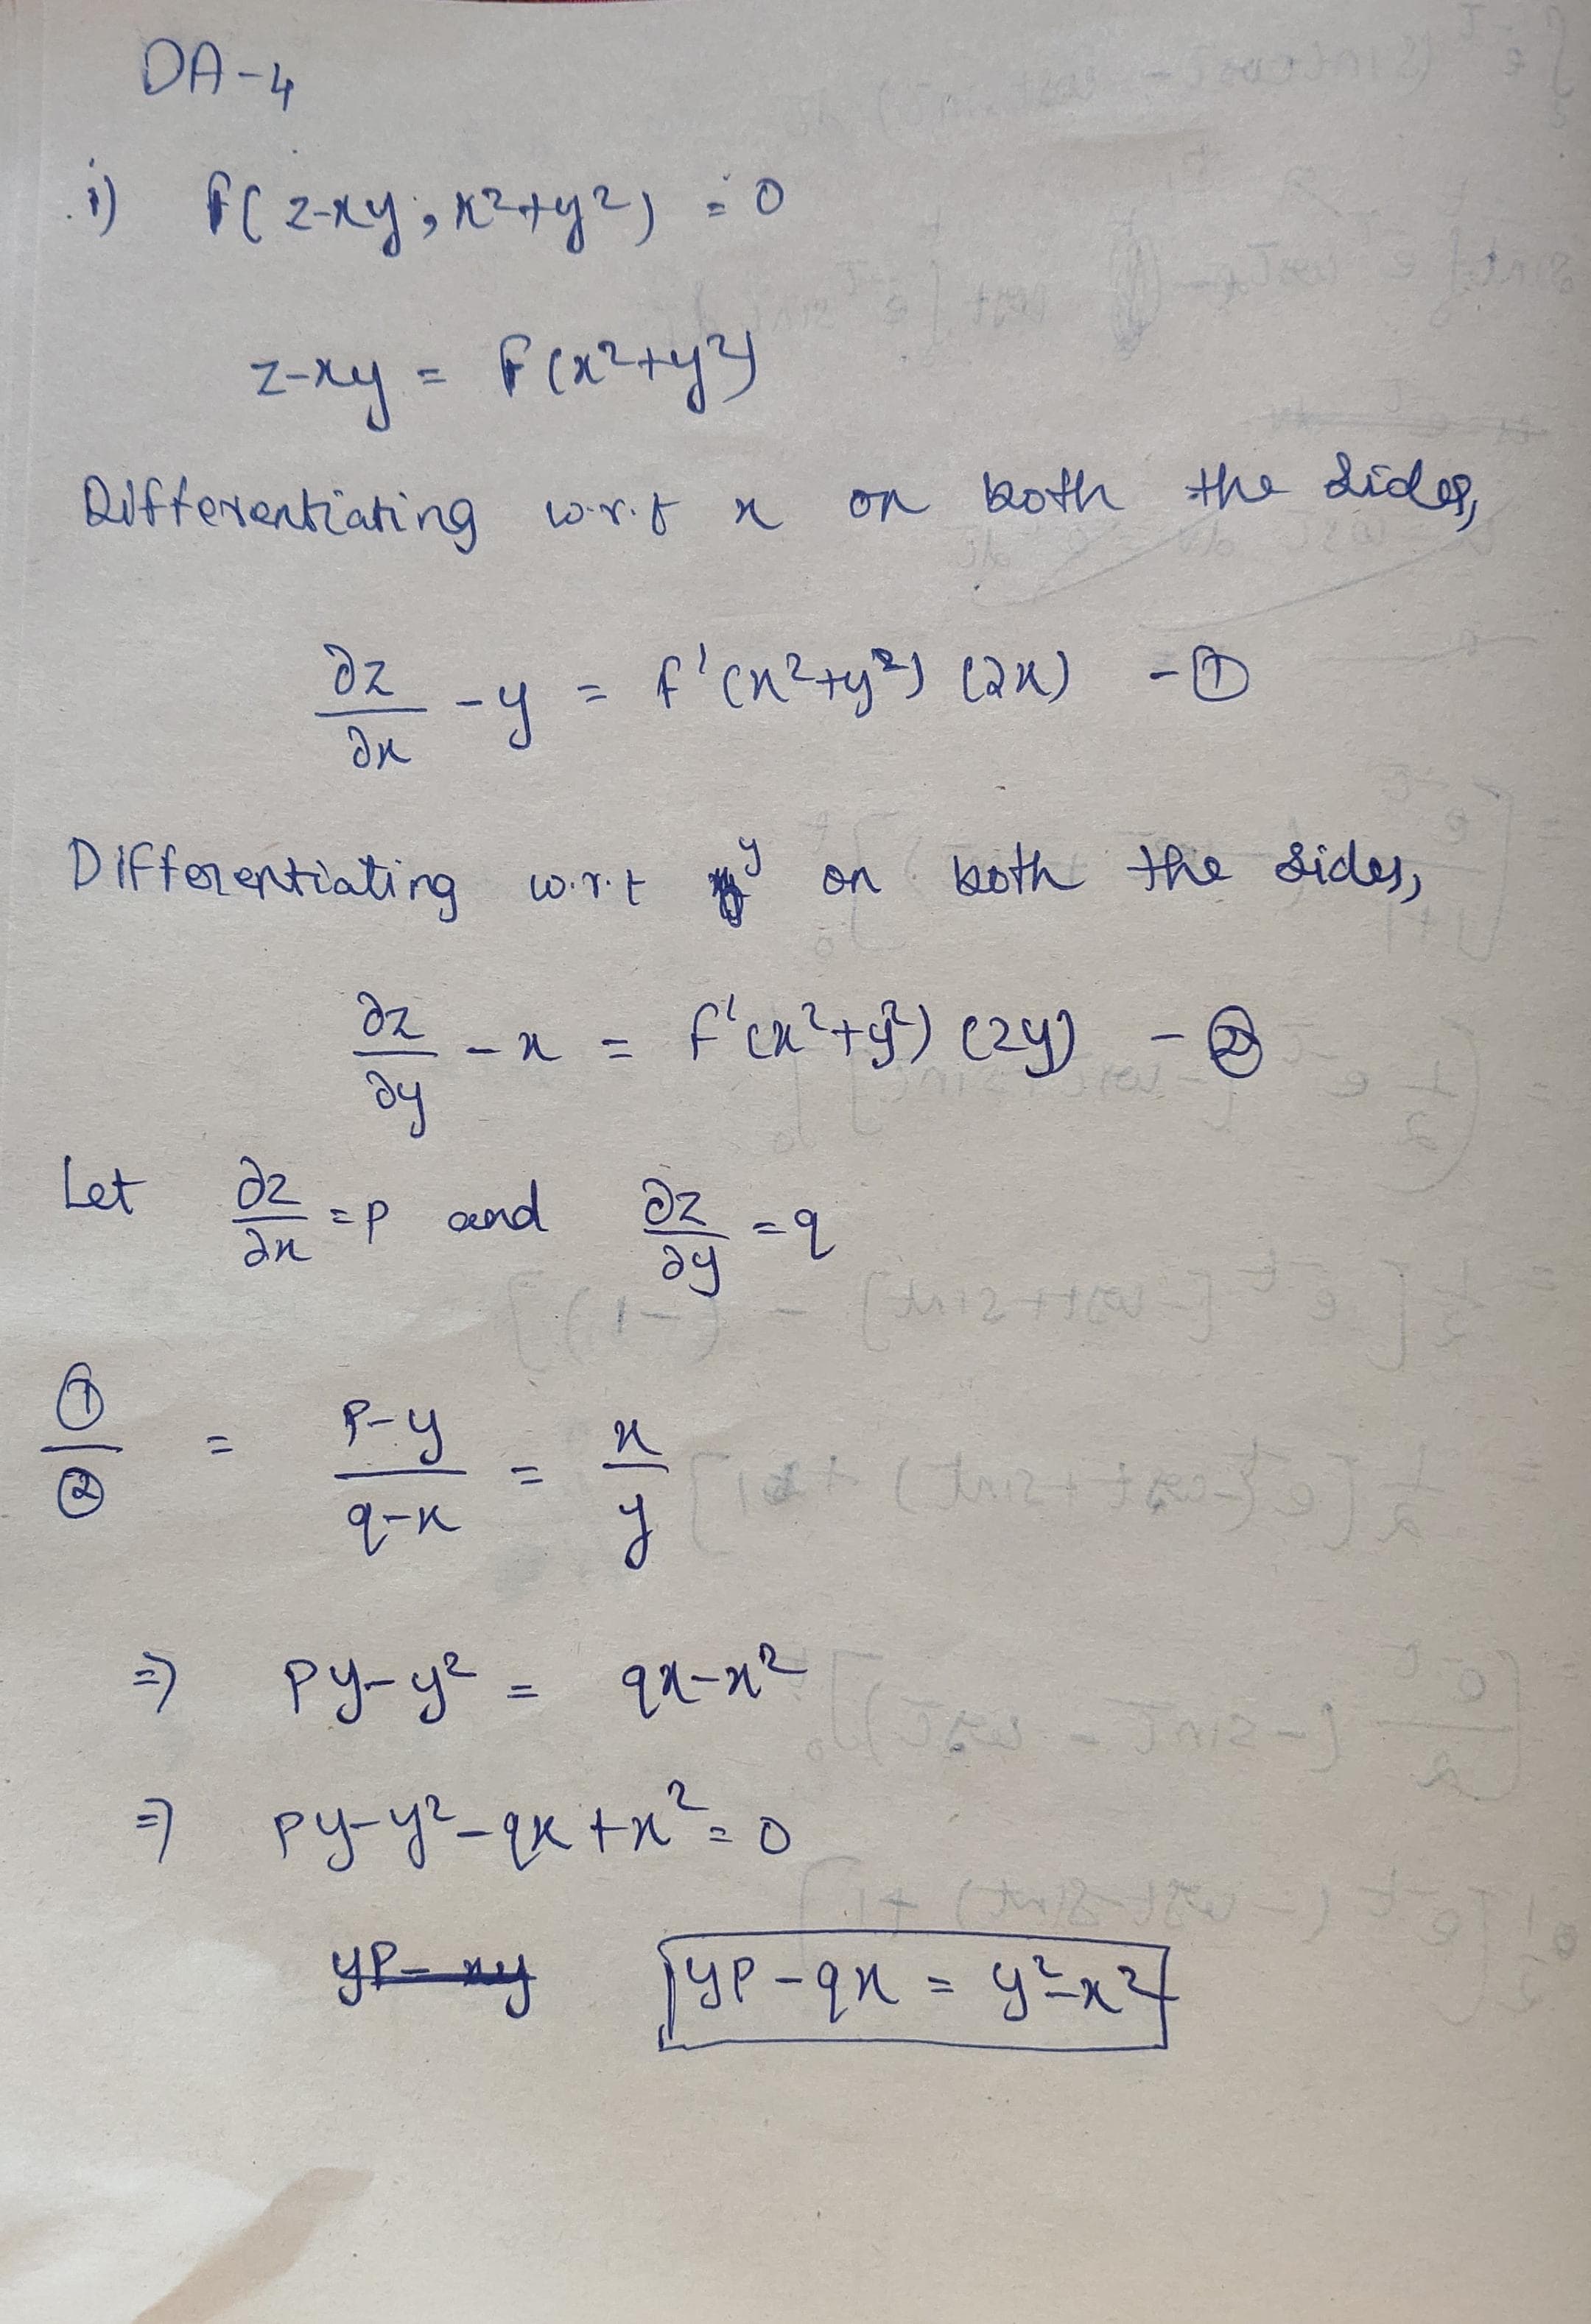 DA-4
i) f(z-xy, x²+y²) = 0
z-xy = f(x²+y²)
Differentiating w.r.t x on both the sides,
∂z/∂x - y = f'(x²+y²) (2x) - ①
Differentiating w.r.t y on both the sides,
∂z/∂y - x = f'(x²+y²) (2y) - ②
Let ∂z/∂x = p and ∂z/∂y = q
①/② = p-y/q-x = x/y
⇒ py-y² = qx-x²
⇒ py-y²-qx+x² = 0
yp-xy yp-qx = y²-x²